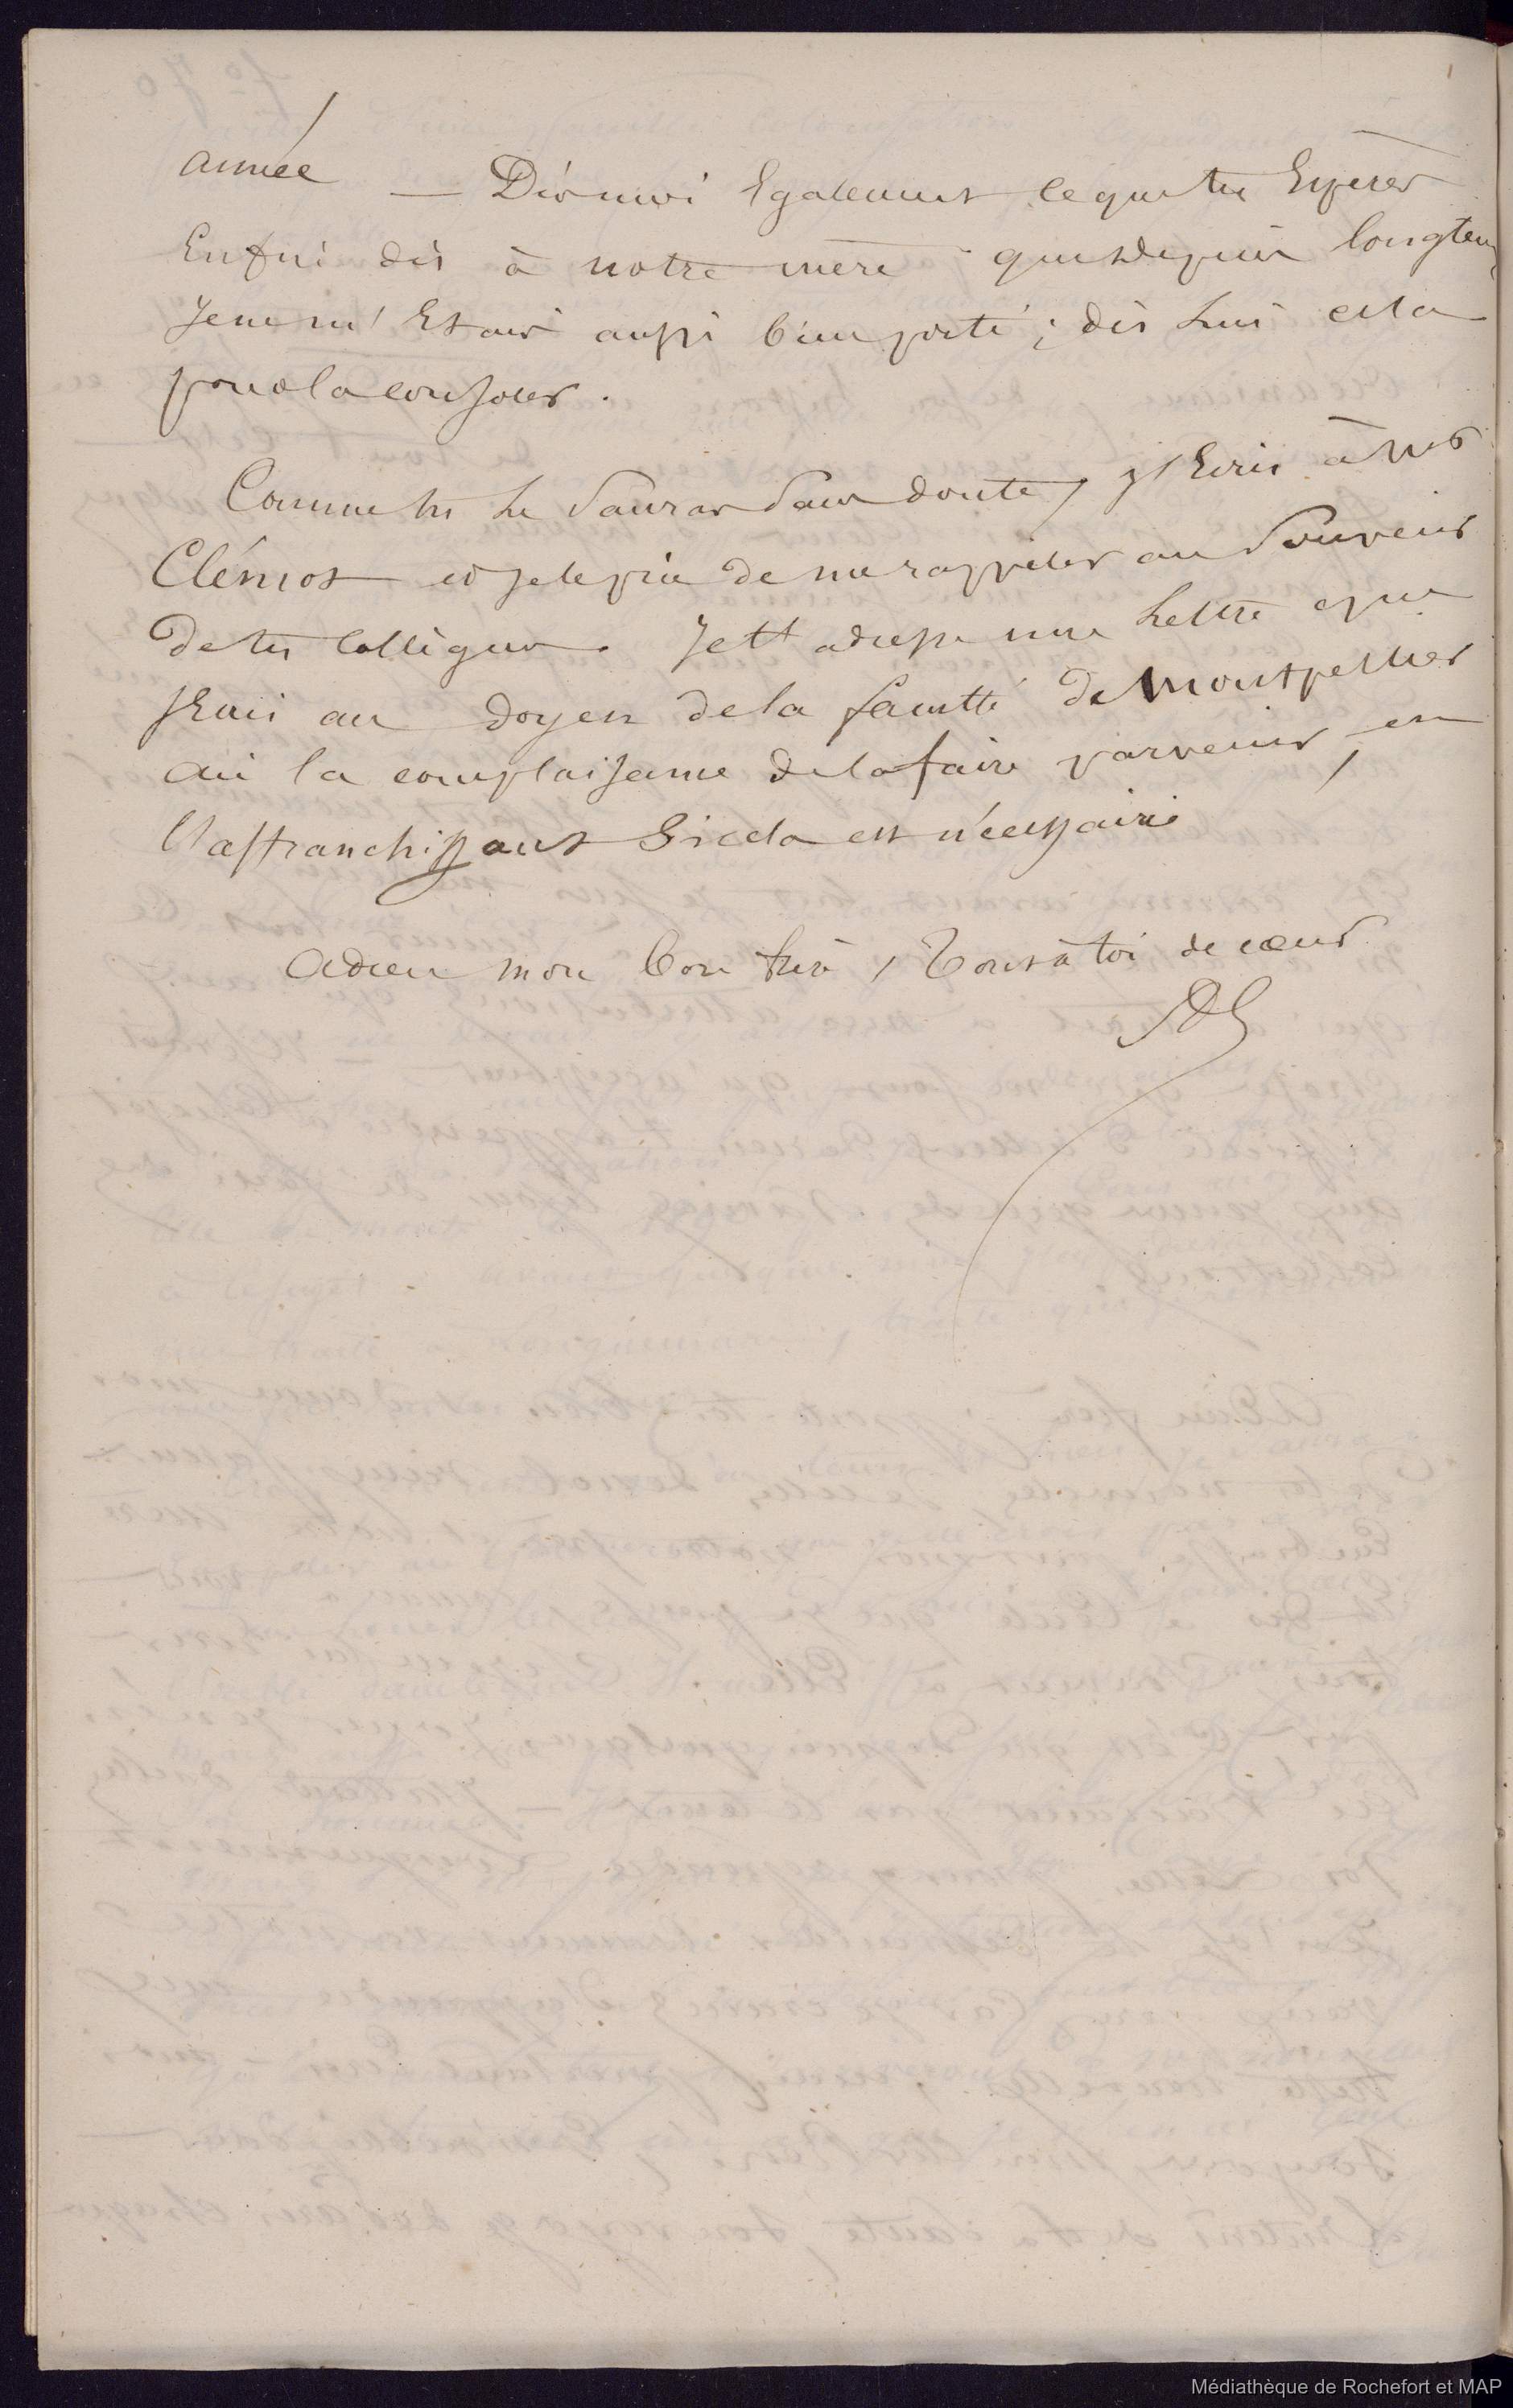 année — Dis moi Egalement ce que tu Espères
Enfin dis à notre mère que depuis longtem
Je ne m'Etais aussi bien porté ; dis lui cela
pour la consoler.
Comme tu le sauras sans doute, j'Ecris à Mr
Clémot et je le prie de me rappeler au Souvenir
de tes collègues. Je t'adresse une lettre que
j'Ecris au doyen de la faculté de Montpellier
aie la complaisance de la faire parvenir, en
l'affranchissant Si cela est nécessaire
adieu mon bon frère, Tout à toi de cœur
Médiathèque de Rochefort et MAP